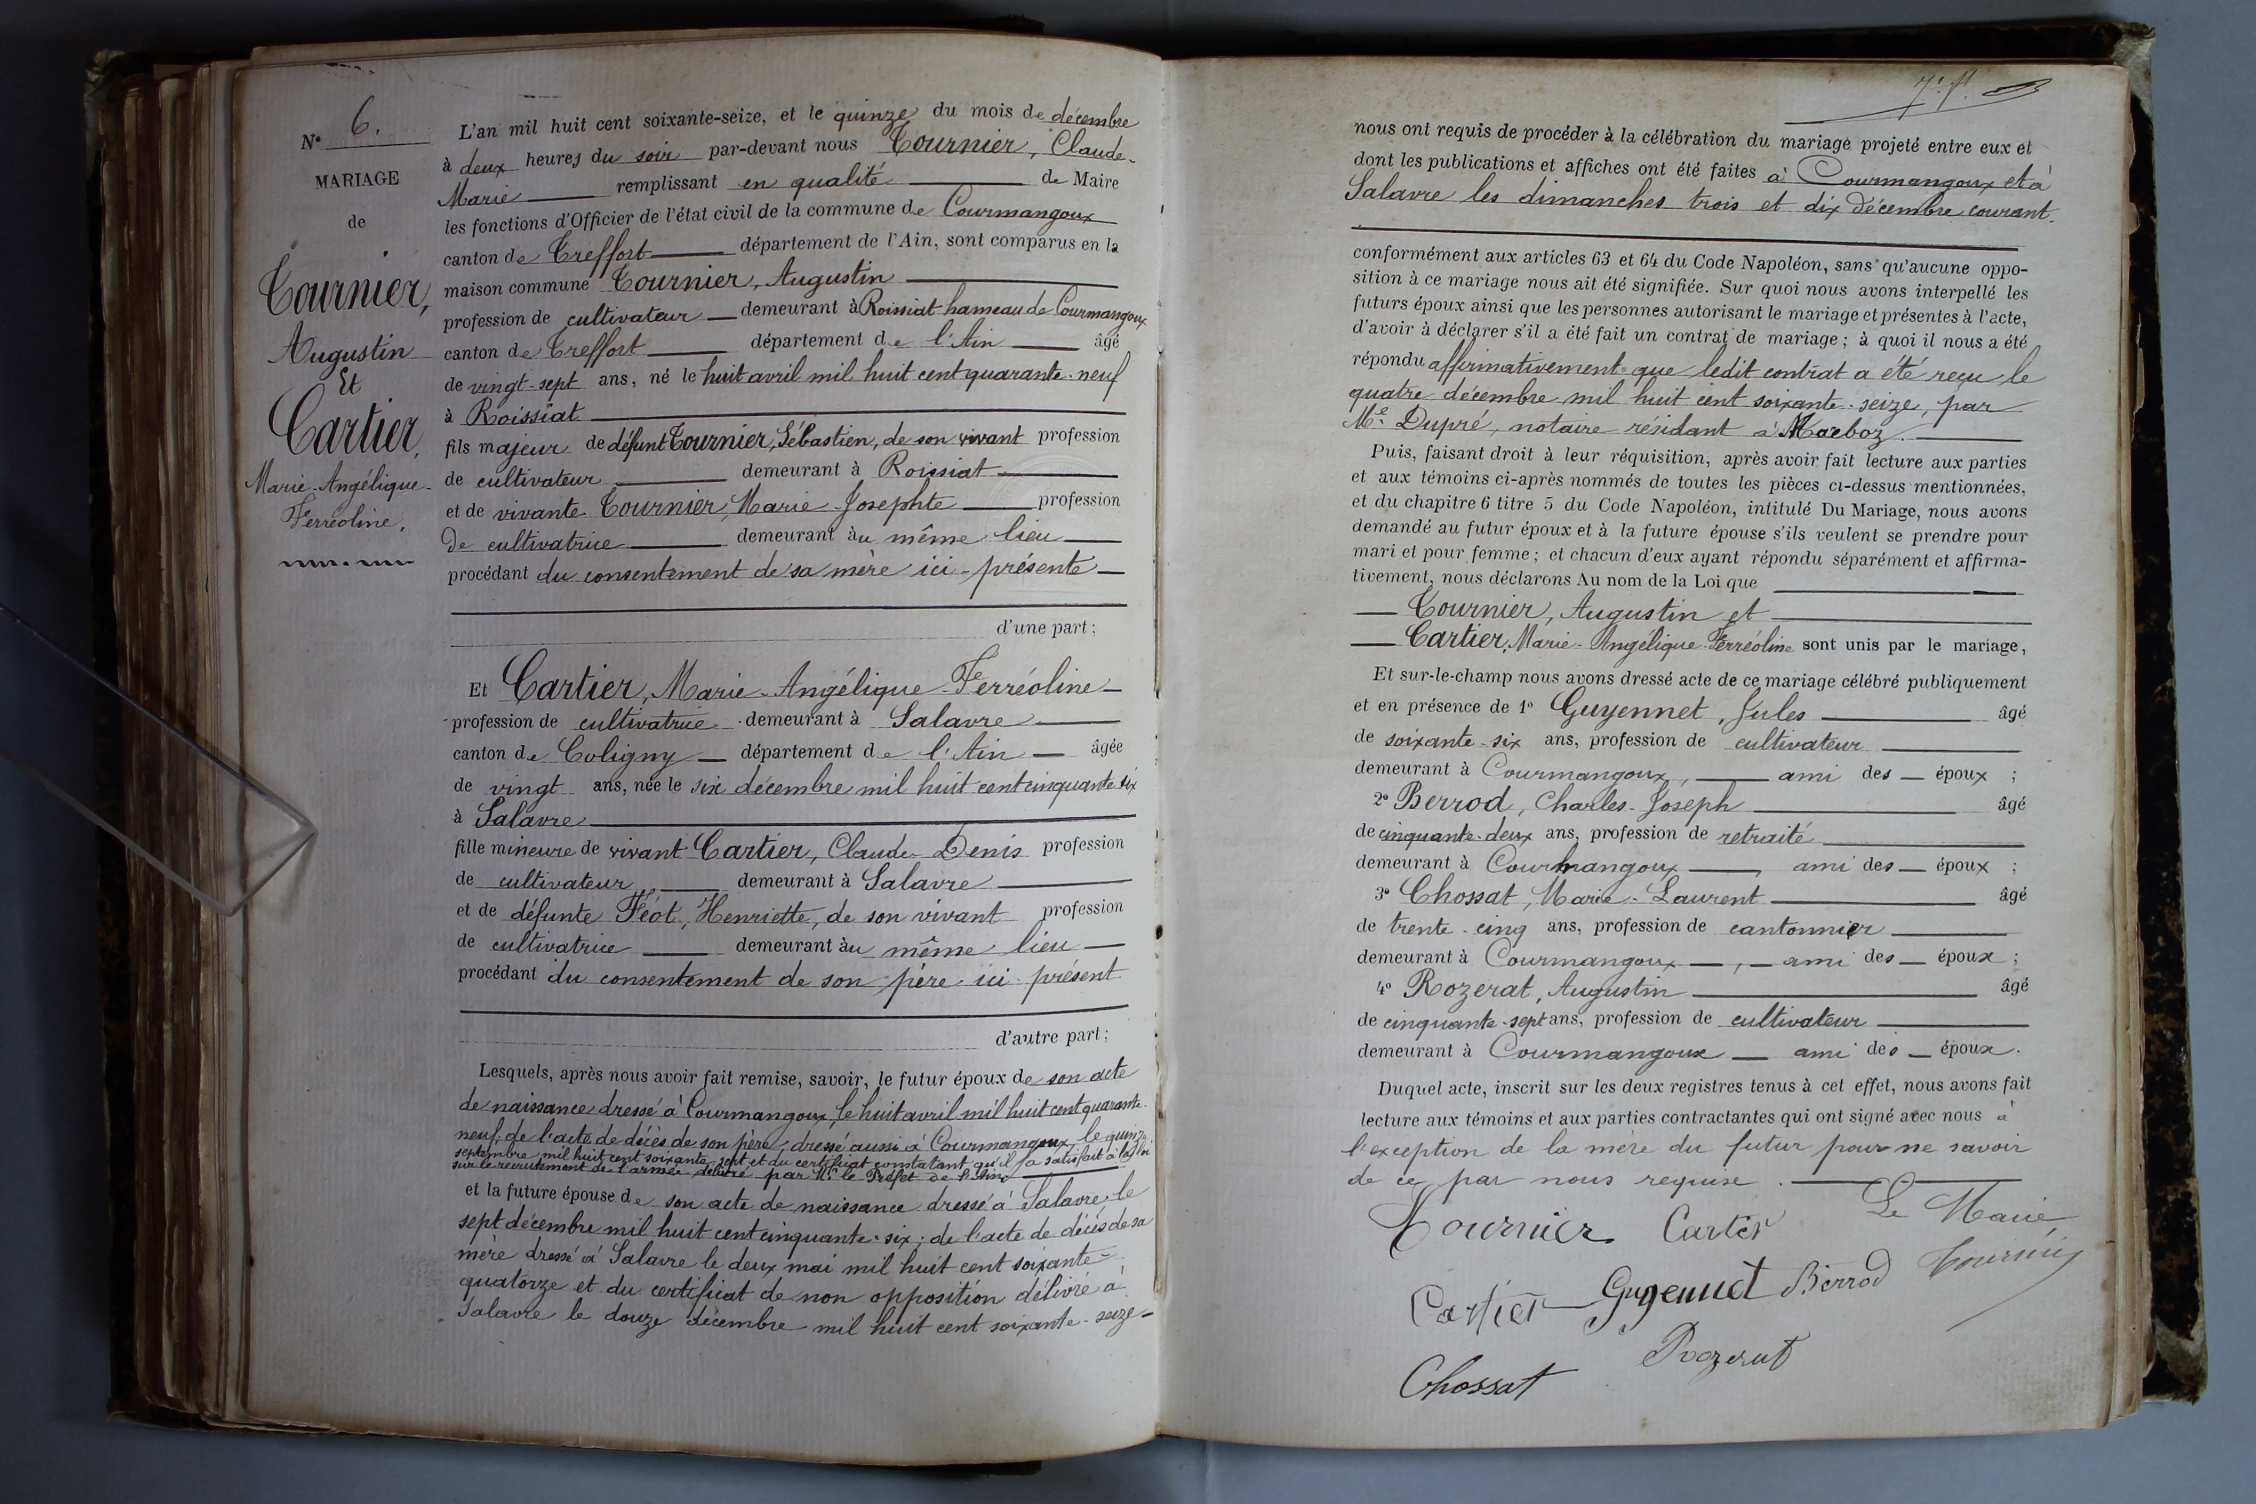 N° 6.
MARIAGE
de
Tournier,
Augustin
Et
Cartier,
Marie-Angélique-
Ferréoline.
L'an mil huit cent soixante-seize, et le quinze du mois de décembre
à deux heures du soir par-devant nous Tournier, Claude-
Marie remplissant en qualité de Maire
les fonctions d'Officier de l'état civil de la commune de Courmangoux
canton de Treffort département de l'Ain, sont comparus en la
maison commune Tournier, Augustin
profession de cultivateur demeurant à Roissiat hameau de Courmangoux
canton de Treffort département de l'Ain âgé
de vingt-sept ans, né le huit avril mil huit cent quarante-neuf
à Roissiat
fils majeur de défunt Tournier, Sébastien, de son vivant profession
de cultivateur demeurant à Roissiat
et de vivante Tournier, Marie-Josephte profession
de cultivatrice demeurant au même lieu
procédant du consentement de sa mère ici-présente
d'une part;
Et Cartier, Marie-Angélique-Ferréoline
profession de cultivatrice demeurant à Salavre
canton de Coligny département de l'Ain âgée
de vingt ans, née le six décembre mil huit cent cinquante-six
à Salavre
fille mineure de vivant Cartier, Claude-Denis profession
de cultivateur, demeurant à Salavre
et de défunte Féot, Henriette, de son vivant profession
de cultivatrice demeurant au même lieu
procédant du consentement de son père ici présent
d'autre part;
Lesquels, après nous avoir fait remise, savoir, le futur époux de son acte
de naissance dressé à Courmangoux, le huit avril mil huit cent quarante-
neuf; de l'acte de décès de son père, dressé aussi à Courmangoux, le quinze
septembre mil huit cent soixante-sept et du certificat constatant qu'il a satisfait à la loi
sur le recrutement de l'armée délivré par Mr le Préfet de l'Ain
et la future épouse de son acte de naissance dressé à Salavre, le
sept décembre mil huit cent cinquante-six; de l'acte de décès de sa
mère dressé à Salavre le deux mai mil huit cent soixante-
quatorze et du certificat de non opposition délivré à
Salavre le douze décembre mil huit cent soixante-seize-
nous ont requis de procéder à la célébration du mariage projeté entre eux et
dont les publications et affiches ont été faites à Courmangoux et à
Salavre les dimanches trois et dix décembre courant.
conformément aux articles 63 et 64 du Code Napoléon, sans qu'aucune oppo-
sition à ce mariage nous ait été signifiée. Sur quoi nous avons interpellé les
futurs époux ainsi que les personnes autorisant le mariage et présentes à l'acte,
d'avoir à déclarer s'il a été fait un contrat de mariage; à quoi il nous a été
répondu affirmativement que ledit contrat a été reçu le
quatre décembre mil huit cent soixante-seize, par
Me Dupré, notaire résidant à Marboz.
Puis, faisant droit à leur réquisition, après avoir fait lecture aux parties
et aux témoins ci-après nommés de toutes les pièces ci-dessus mentionnées,
et du chapitre 6 titre 5 du Code Napoléon, intitulé Du Mariage, nous avons
demandé au futur époux et à la future épouse s'ils veulent se prendre pour
mari et pour femme; et chacun d'eux ayant répondu séparément et affirma-
tivement, nous déclarons Au nom de la Loi que
Tournier, Augustin et
Cartier, Marie-Angélique-Ferréoline sont unis par le mariage,
Et sur-le-champ nous avons dressé acte de ce mariage célébré publiquement
et en présence de 1° Guyennet, Jules âgé
de soixante-six ans, profession de cultivateur
demeurant à Courmangoux, ami des époux;
2° Berrod, Charles-Joseph âgé
de cinquante-deux ans, profession de retraité
demeurant à Courmangoux, ami des époux;
3° Chossat, Marie-Laurent âgé
de trente-cinq ans, profession de cantonnier
demeurant à Courmangoux, ami des époux;
4° Rozerat, Augustin âgé
de cinquante-sept ans, profession de cultivateur
demeurant à Courmangoux ami des époux.
Duquel acte, inscrit sur les deux registres tenus à cet effet, nous avons fait
lecture aux témoins et aux parties contractantes qui ont signé avec nous à
l'exception de la mère du futur pour ne savoir
de ce par nous requise.
Tournier Cartier Le Maire
Tournier
Cartier Guyennet Berrod
Rozerat
Chossat